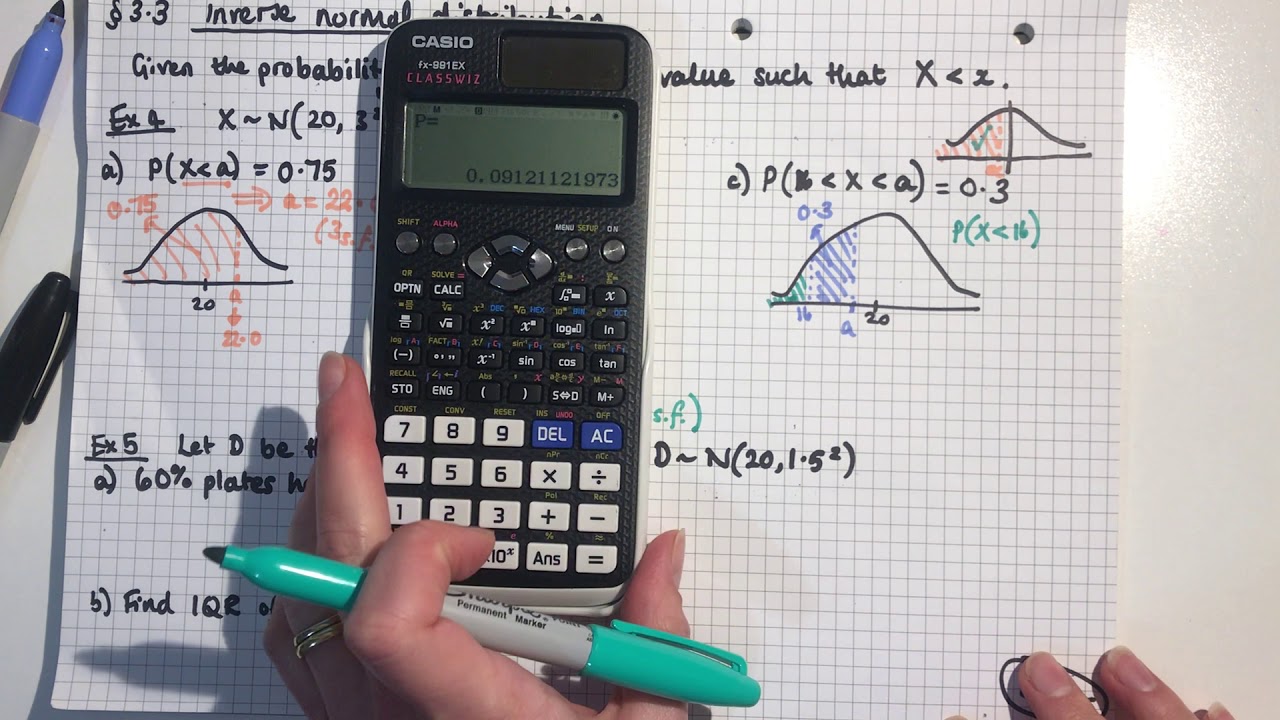 §3.3 Inverse normal distribution
Given the probabilit value such that X < x.
Ex 4 X ~ N(20, 3²
a) P(X<a) = 0.75
0.75 ⇒ a = 22.
(3s.f.
20
a
22.0
c) P(16 < X < a) = 0.3
0.3
P(X<16)
16 a 20
s.f.)
Ex 5 Let D be th D ~ N(20, 1.5²)
a) 60% plates h
b) Find IQR o
CASIO
fx-991EX
CLASSWIZ
P=
0.09121121973
SHIFT ALPHA MENU SETUP ON
QR SOLVE =
OPTN CALC x
log ln
(−) sin cos tan
RECALL
STO ENG ( ) S⇔D M+
CONST CONV RESET INS UNDO OFF
7 8 9 DEL AC
nPr nCr
4 5 6 × ÷
Pol Rec
1 2 3 + −
×10ˣ Ans =
Permanent Marker